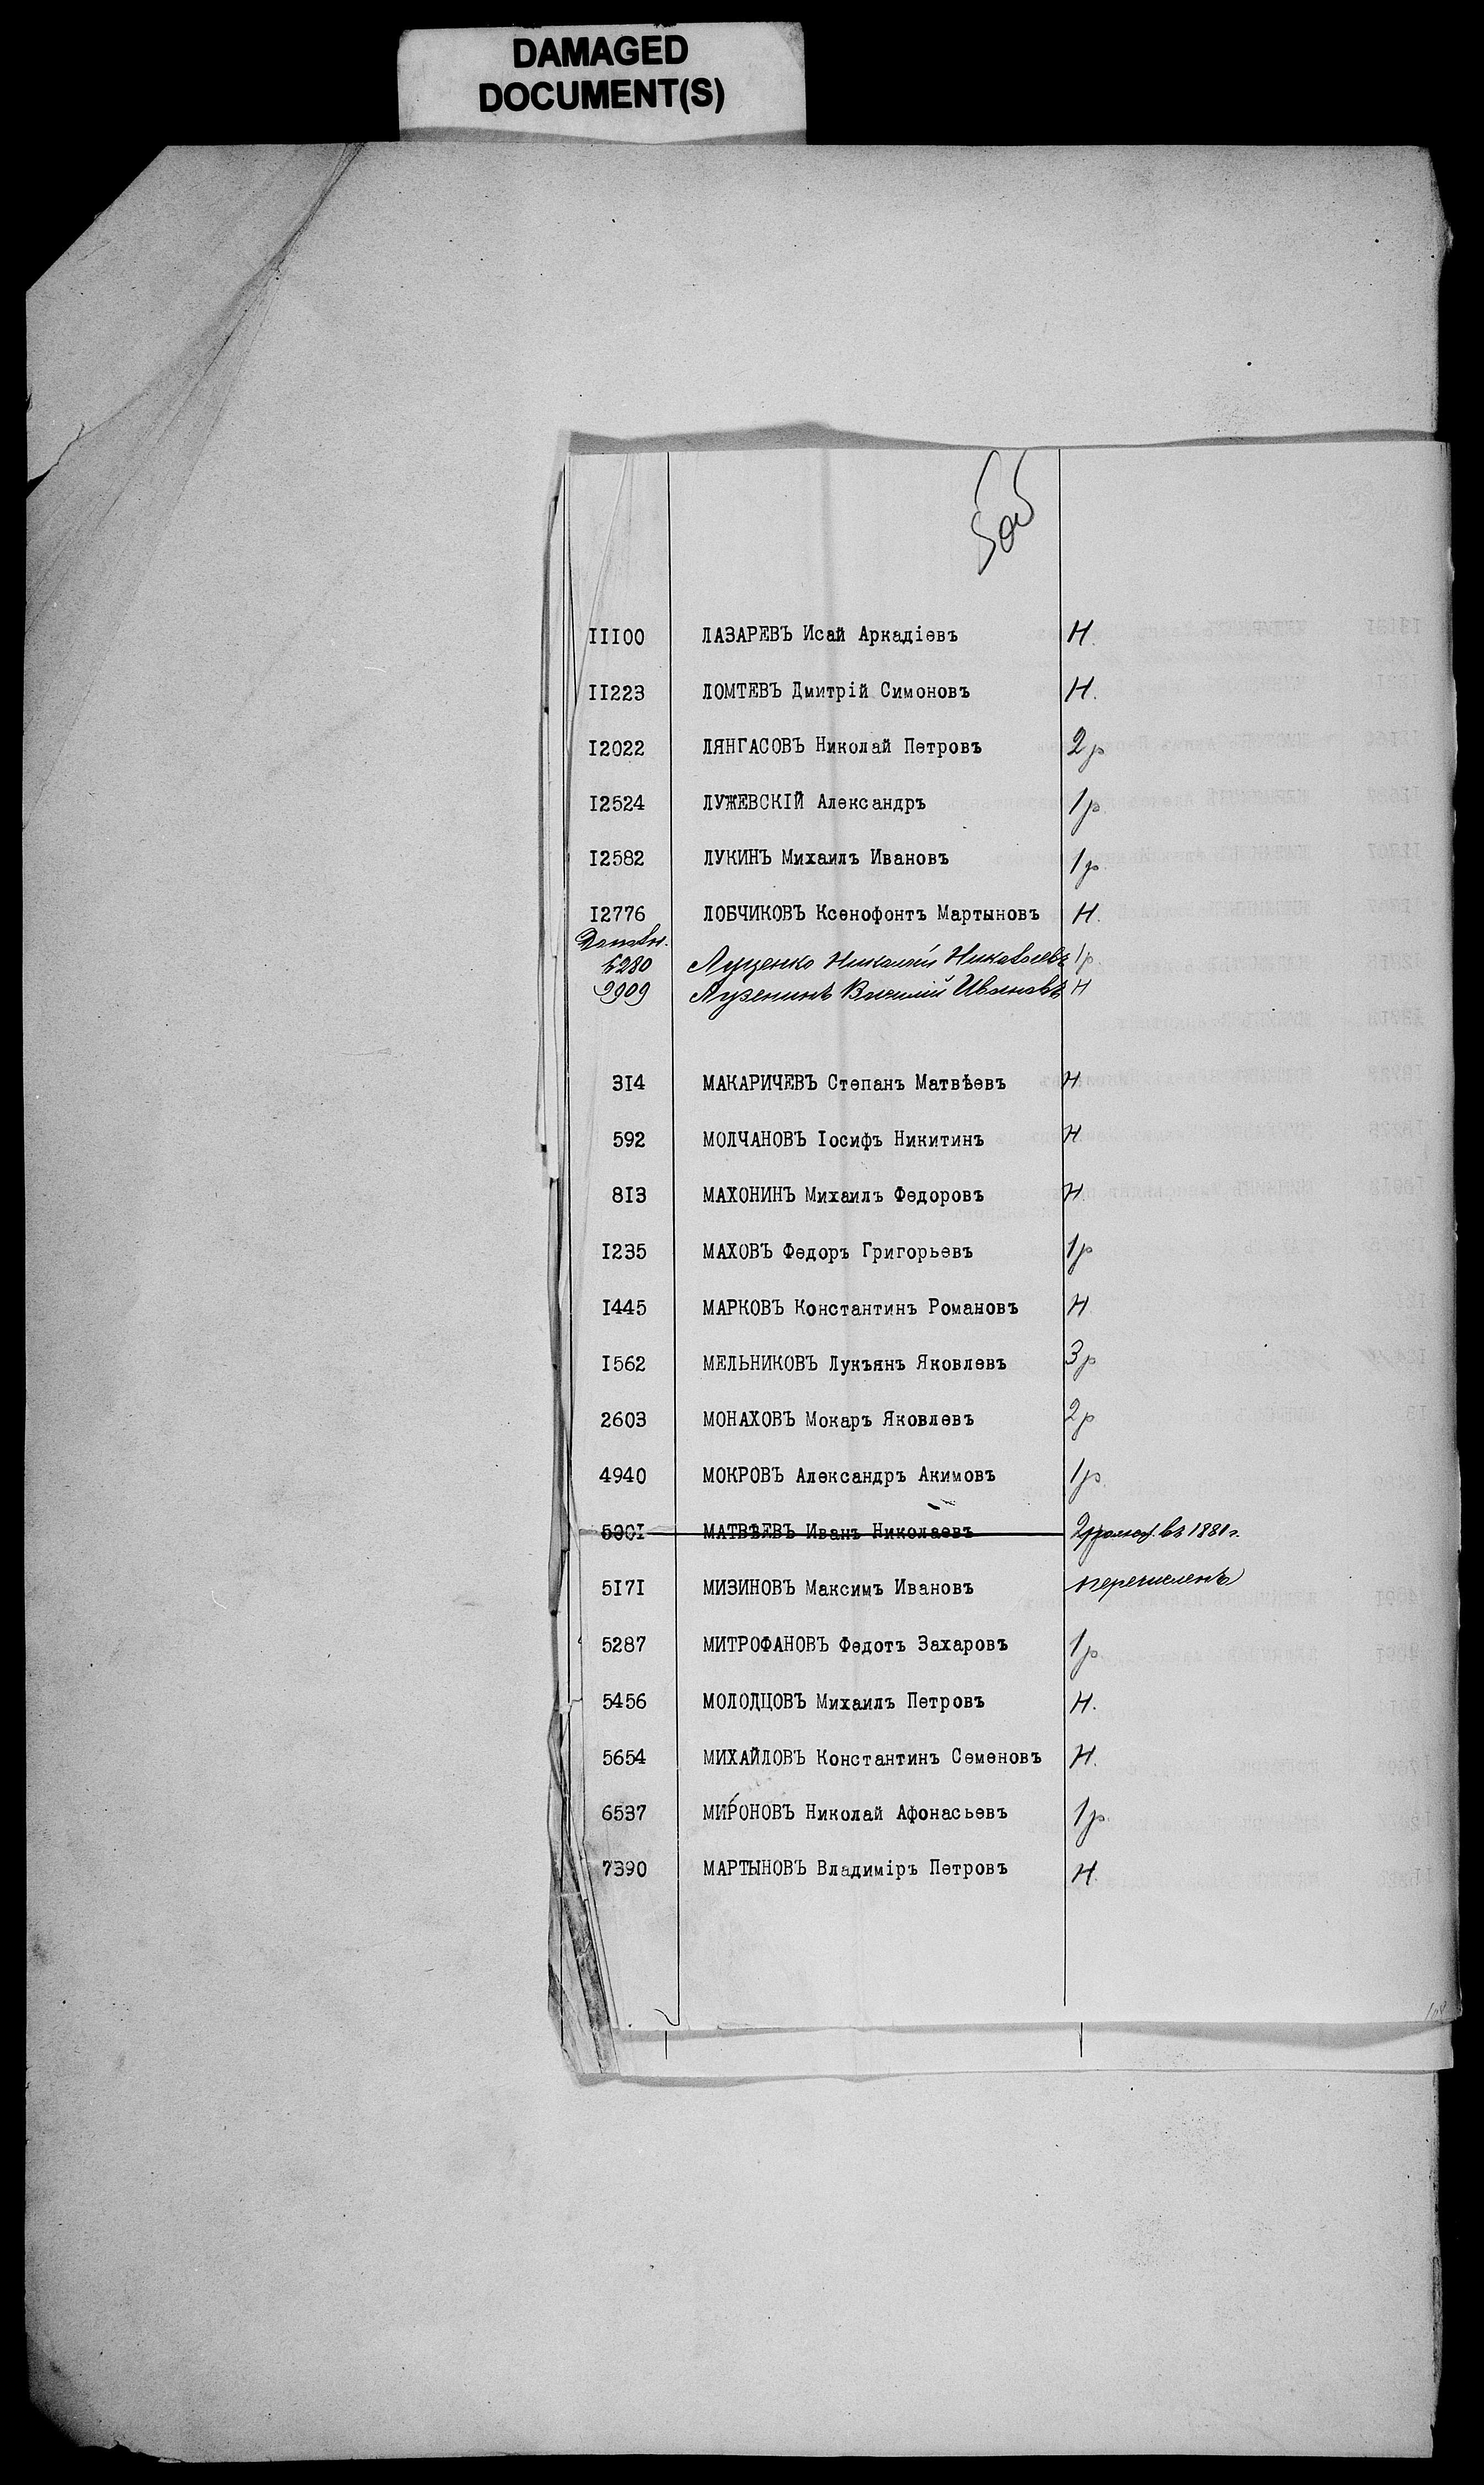 DAMAGED
DOCUMENT(S)
III00 ЛАЗАРЕВЪ Исай Аркадіевъ Н.
II223 ЛОМТЕВЪ Дмитрій Симоновъ Н.
I2022 ЛЯНГАСОВЪ Николай Петровъ 2р
I2524 ЛУЖЕВСКІЙ Александръ 1р.
I2582 ЛУКИНЪ Михаилъ Ивановъ 1р.
I2776 ЛОБЧИКОВЪ Ксенофонтъ Мартыновъ Н.
5280 Луценко Николай Николаевъ 1р
9909 Лузенинъ Василій Ивановъ Н
3I4 МАКАРИЧЕВЪ Степанъ Матвѣевъ Н
592 МОЛЧАНОВЪ Іосифъ Никитинъ Н
8I3 МАХОНИНЪ Михаилъ Федоровъ Н
I235 МАХОВЪ Федоръ Григорьевъ 1р
I445 МАРКОВЪ Константинъ Романовъ Н
I562 МЕЛЬНИКОВЪ Лукъянъ Яковлевъ 3р
2603 МОНАХОВЪ Мокаръ Яковлевъ 2р
4940 МОКРОВЪ Александръ Акимовъ 1р.
500I МАТВѢЕВЪ Иванъ Николаевъ въ 1880 г.
5I7I МИЗИНОВЪ Максимъ Ивановъ перечисленъ
5287 МИТРОФАНОВЪ Федотъ Захаровъ 1р
5456 МОЛОДЦОВЪ Михаилъ Петровъ Н.
5654 МИХАЙЛОВЪ Константинъ Семеновъ Н.
6537 МИРОНОВЪ Николай Афонасьевъ 1р.
7390 МАРТЫНОВЪ Владиміръ Петровъ Н.